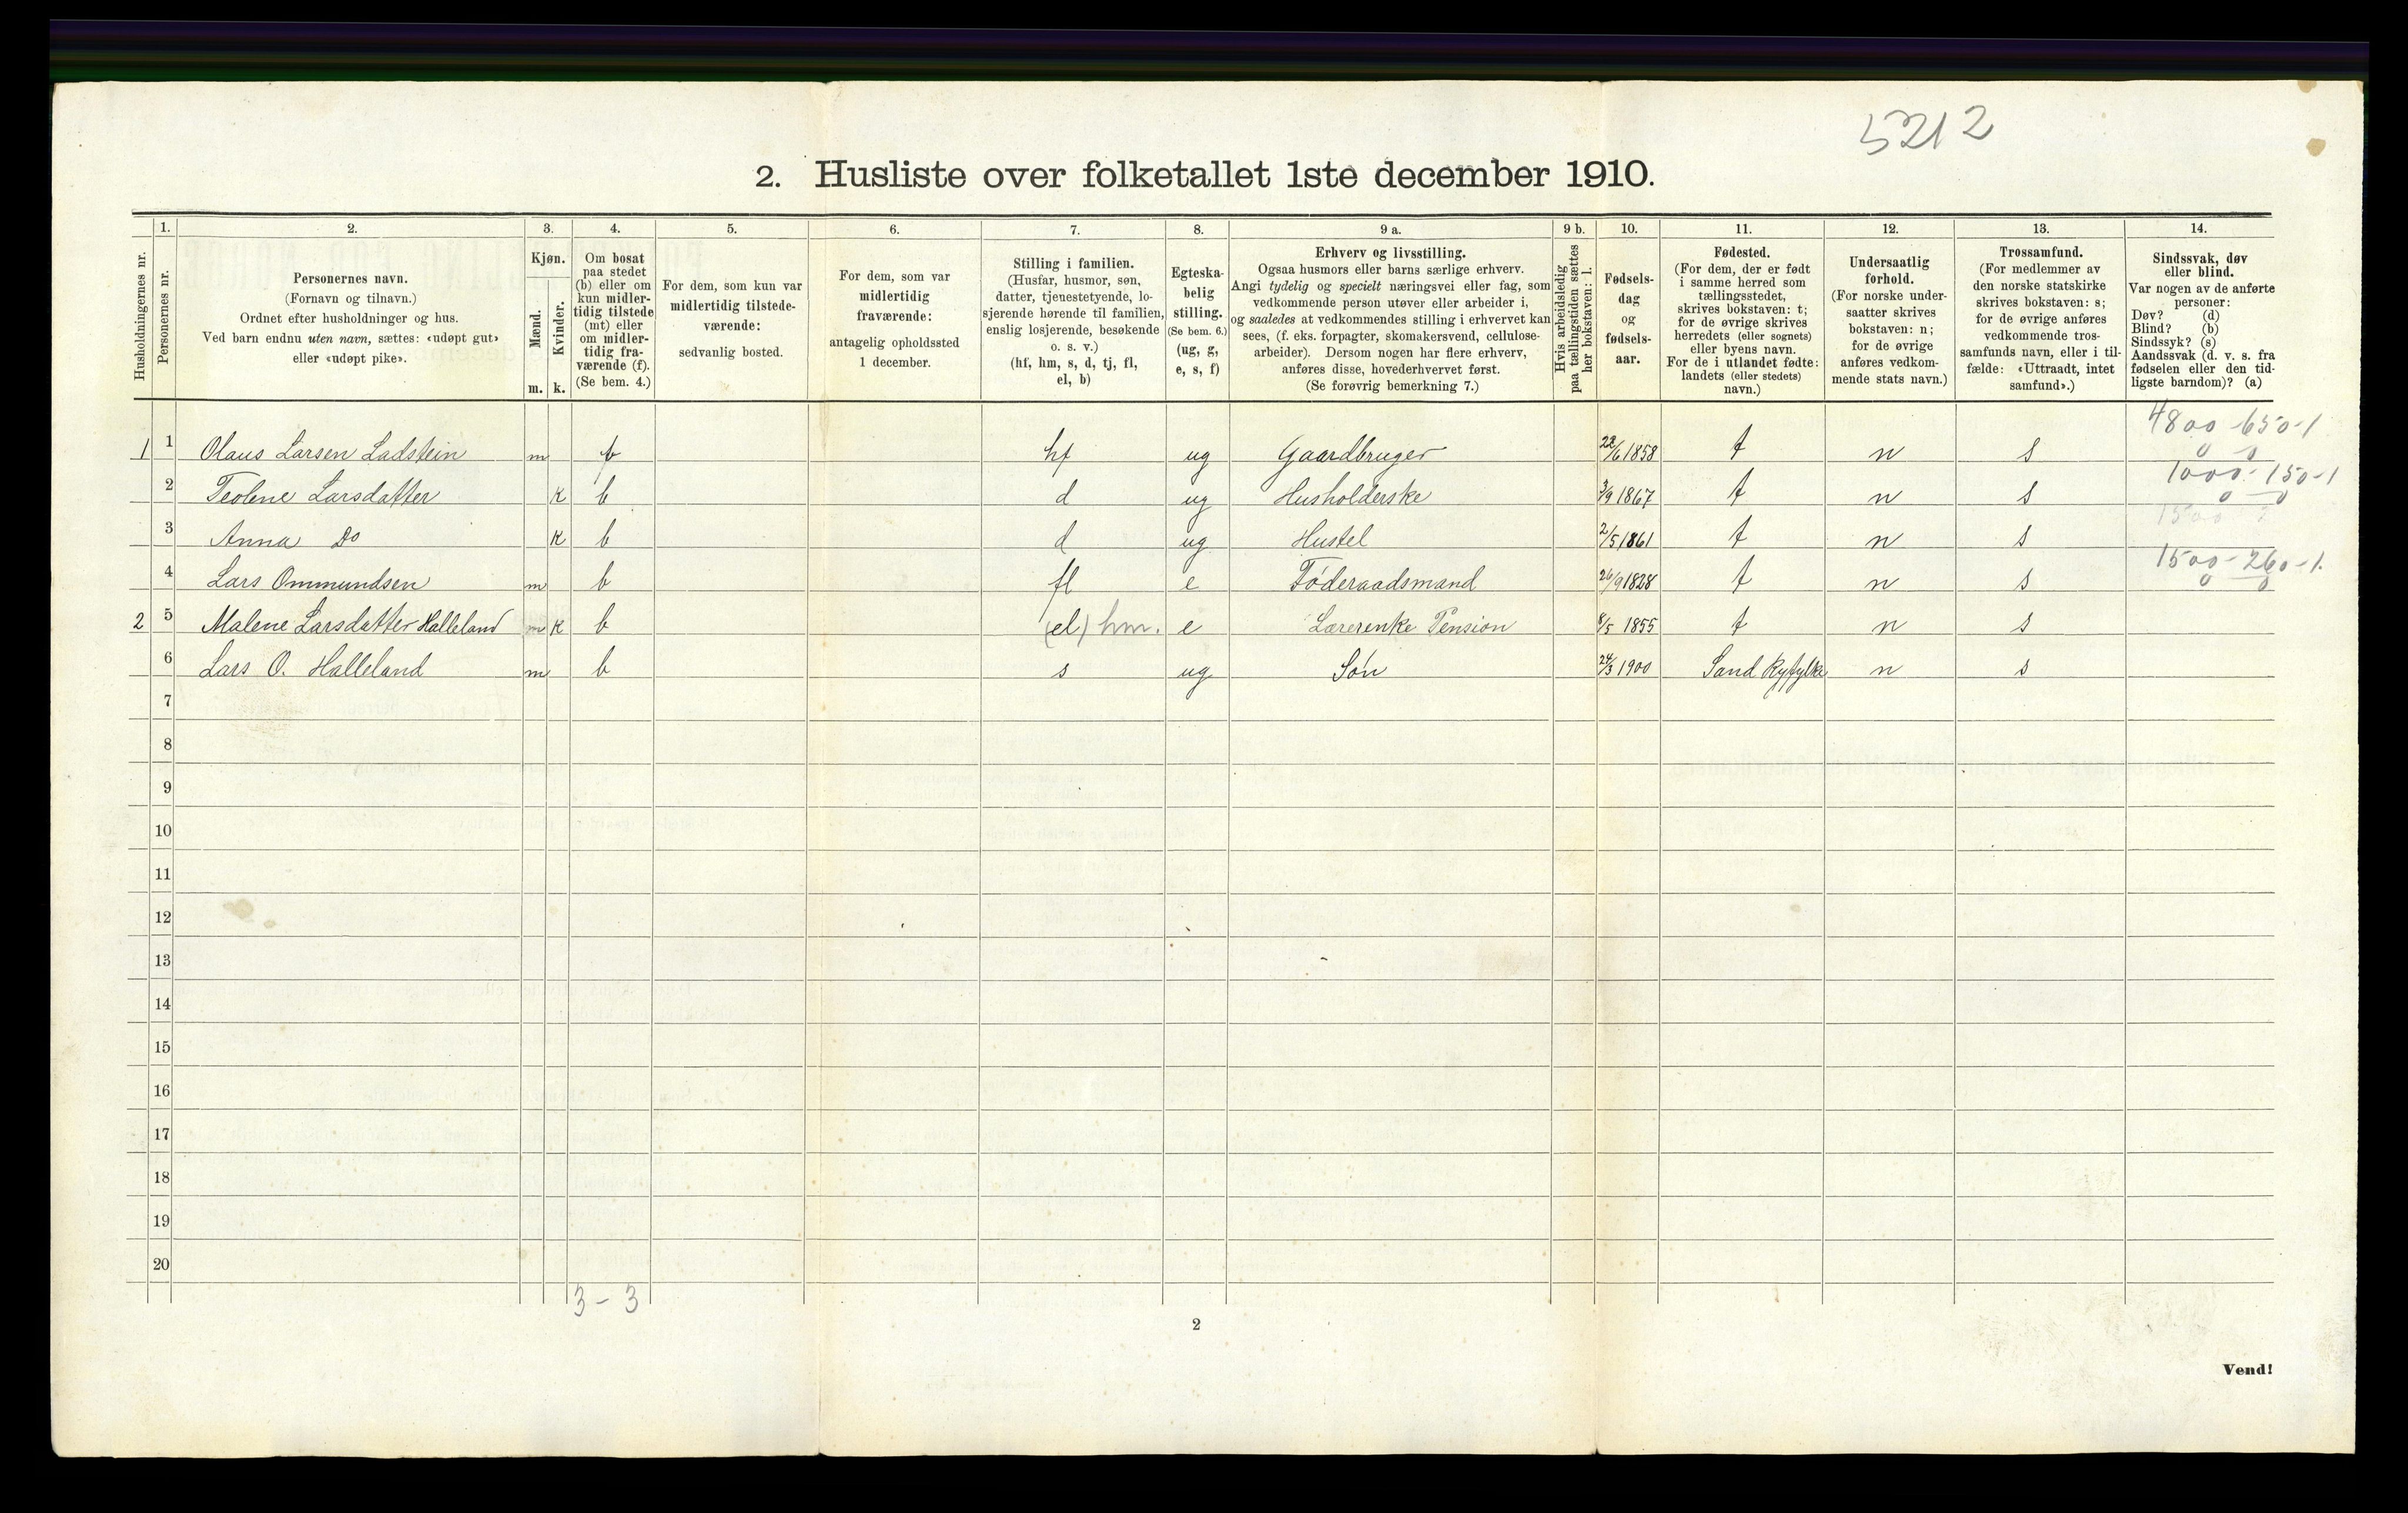 5212
2. Husliste over folketallet 1ste december 1910.
Husholdningernes nr.
1.
Personernes nr.
2.
Personernes navn.
(Fornavn og tilnavn.)
Ordnet efter husholdninger og hus.
Ved barn endnu uten navn, sættes: «udøpt gut»
eller «udøpt pike».
3.
Kjøn.
Mænd.
m.
Kvinder.
k.
4.
Om bosat
paa stedet
(b) eller om
kun midler-
tidig tilstede
(mt) eller
om midler-
tidig fra-
værende (f).
(Se bem. 4.)
5.
For dem, som kun var
midlertidig tilstede-
værende:
sedvanlig bosted.
6.
For dem, som var
midlertidig
fraværende:
antagelig opholdssted
1 december.
7.
Stilling i familien.
(Husfar, husmor, søn,
datter, tjenestetyende, lo-
sjerende hørende til familien,
enslig losjerende, besøkende
o. s. v.)
(hf, hm, s, d, tj, fl,
el, b)
8.
Egteska-
belig
stilling.
(Se bem. 6.)
(ug, g,
e, s, f)
9 a.
Erhverv og livsstilling.
Ogsaa husmors eller barns særlige erhverv.
Angi tydelig og specielt næringsvei eller fag, som
vedkommende person utøver eller arbeider i,
og saaledes at vedkommendes stilling i erhvervet kan
sees, (f. eks. forpagter, skomakersvend, cellulose-
arbeider). Dersom nogen har flere erhverv,
anføres disse, hovederhvervet først.
(Se forøvrig bemerkning 7.)
9 b.
Hvis arbeidsledig
paa tællingstiden sættes
her bokstaven: l.
10.
Fødsels-
dag
og
fødsels-
aar.
11.
Fødested.
(For dem, der er født
i samme herred som
tællingsstedet,
skrives bokstaven: t;
for de øvrige skrives
herredets (eller sognets)
eller byens navn.
For de i utlandet fødte:
landets (eller stedets)
navn.)
12.
Undersaatlig
forhold.
(For norske under-
saatter skrives
bokstaven: n;
for de øvrige
anføres vedkom-
mende stats navn.)
13.
Trossamfund.
(For medlemmer av
den norske statskirke
skrives bokstaven: s;
for de øvrige anføres
vedkommende tros-
samfunds navn, eller i til-
fælde: «Uttraadt, intet
samfund».)
14.
Sindssvak, døv
eller blind.
Var nogen av de anførte
personer:
Døv? (d)
Blind? (b)
Sindssyk? (s)
Aandssvak (d. v. s. fra
fødselen eller den tid-
ligste barndom)? (a)
1 1 Olaus Larsen Ladstein m b hf ug Gaardbruger 22/6 1858 t n s 4800-650-1
0 0
2 Teoline Larsdatter k b d ug Husholderske 3/9 1867 t n s 1000-150-1
0 0
3 Anna Do k b d ug Hustel 2/5 1861 t n s 1500
4 Lars Ommundsen m b fl e Føderaadsmand 26/9 1828 t n s 1500-260-1.
0 0
2 5 Malene Larsdatter Halleland m k b (el) hm. e Lærerenke Pension 8/5 1855 t n s
6 Lars O. Halleland m b s ug Søn 24/3 1900 Sand Ryfylke n s
7
8
9
10
11
12
13
14
15
16
17
18
19
20
3 - 3
2
Vend!